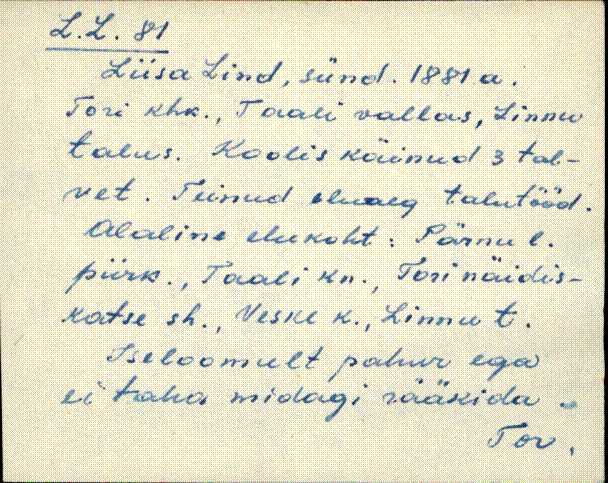 L.L. 81
Liisa Lind, sünd. 1881 a.
Tori khk., Taali vallas, Linnu
talus. Koolis käinud 3 tal-
vet. Teinud eluaeg talutööd.
Alaline elukoht: Pärnu l.
piirk., Taali kn., Tori näidis-
katse sh., Veske k., Linnu t.
Iseloomult pahur ega
ei taha midagi rääkida.
Tor.